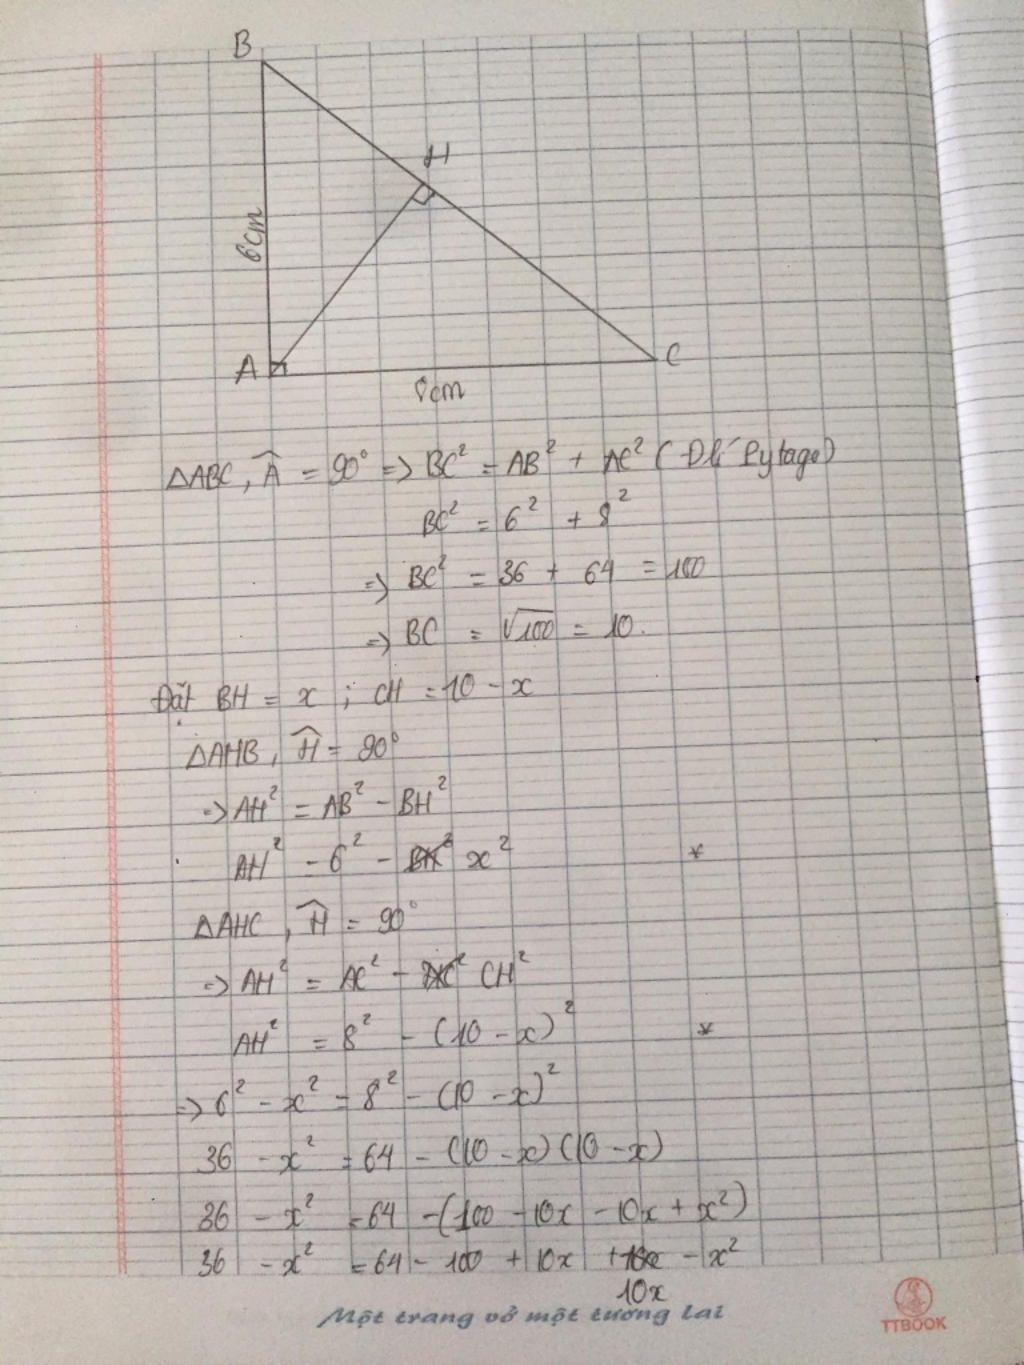 B
H
6cm
A
C
8cm
△ABC, Â = 90° => BC² = AB² + AC² (Đlí Pytago)
BC² = 6² + 8²
=> BC² = 36 + 64 = 100
=> BC = √100 = 10.
Đặt BH = x ; CH = 10 - x
△AHB, Ĥ = 90°
=> AH² = AB² - BH²
AH² = 6² - x² *
△AHC, Ĥ = 90°
=> AH² = AC² - CH²
AH² = 8² - (10 - x)² *
=> 6² - x² = 8² - (10 - x)²
36 - x² = 64 - (10 - x)(10 - x)
36 - x² = 64 - (100 - 10x - 10x + x²)
36 - x² = 64 - 100 + 10x + 10x - x²
Một trang vở một tương lai
TTBOOK